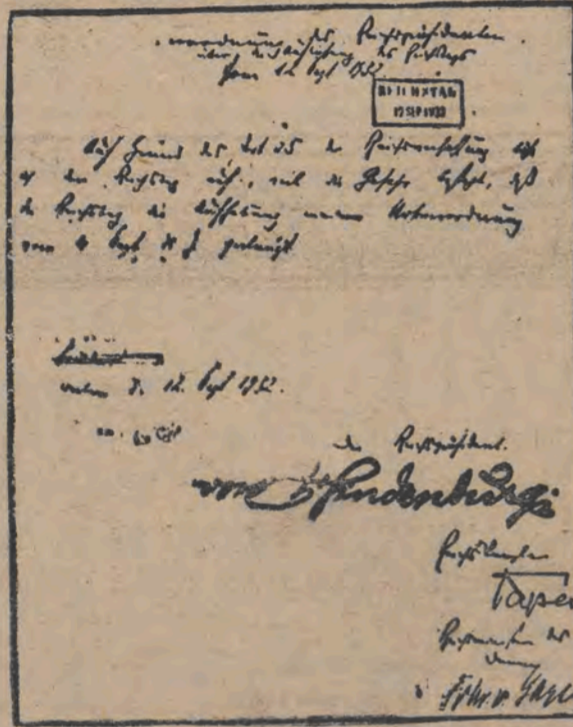 Verordnung des Reichspräsidenten
über die Auflösung des Reichstags
Vom 12. Sept 1932.
REICHSTAG
12 SEP 1932
Auf Grund des Art 25 der Reichsverfassung löse
ich den Reichstag auf, weil die Gefahr besteht, daß
der Reichstag die Aufhebung meiner Notverordnung
vom 4 Sept. d. J. verlangt
Berlin d. 12. Sept 1932.
Der Reichspräsident.
von Hindenburg
Reichskanzler
Papen
Reichsminister des
Frhr. v. Gayl